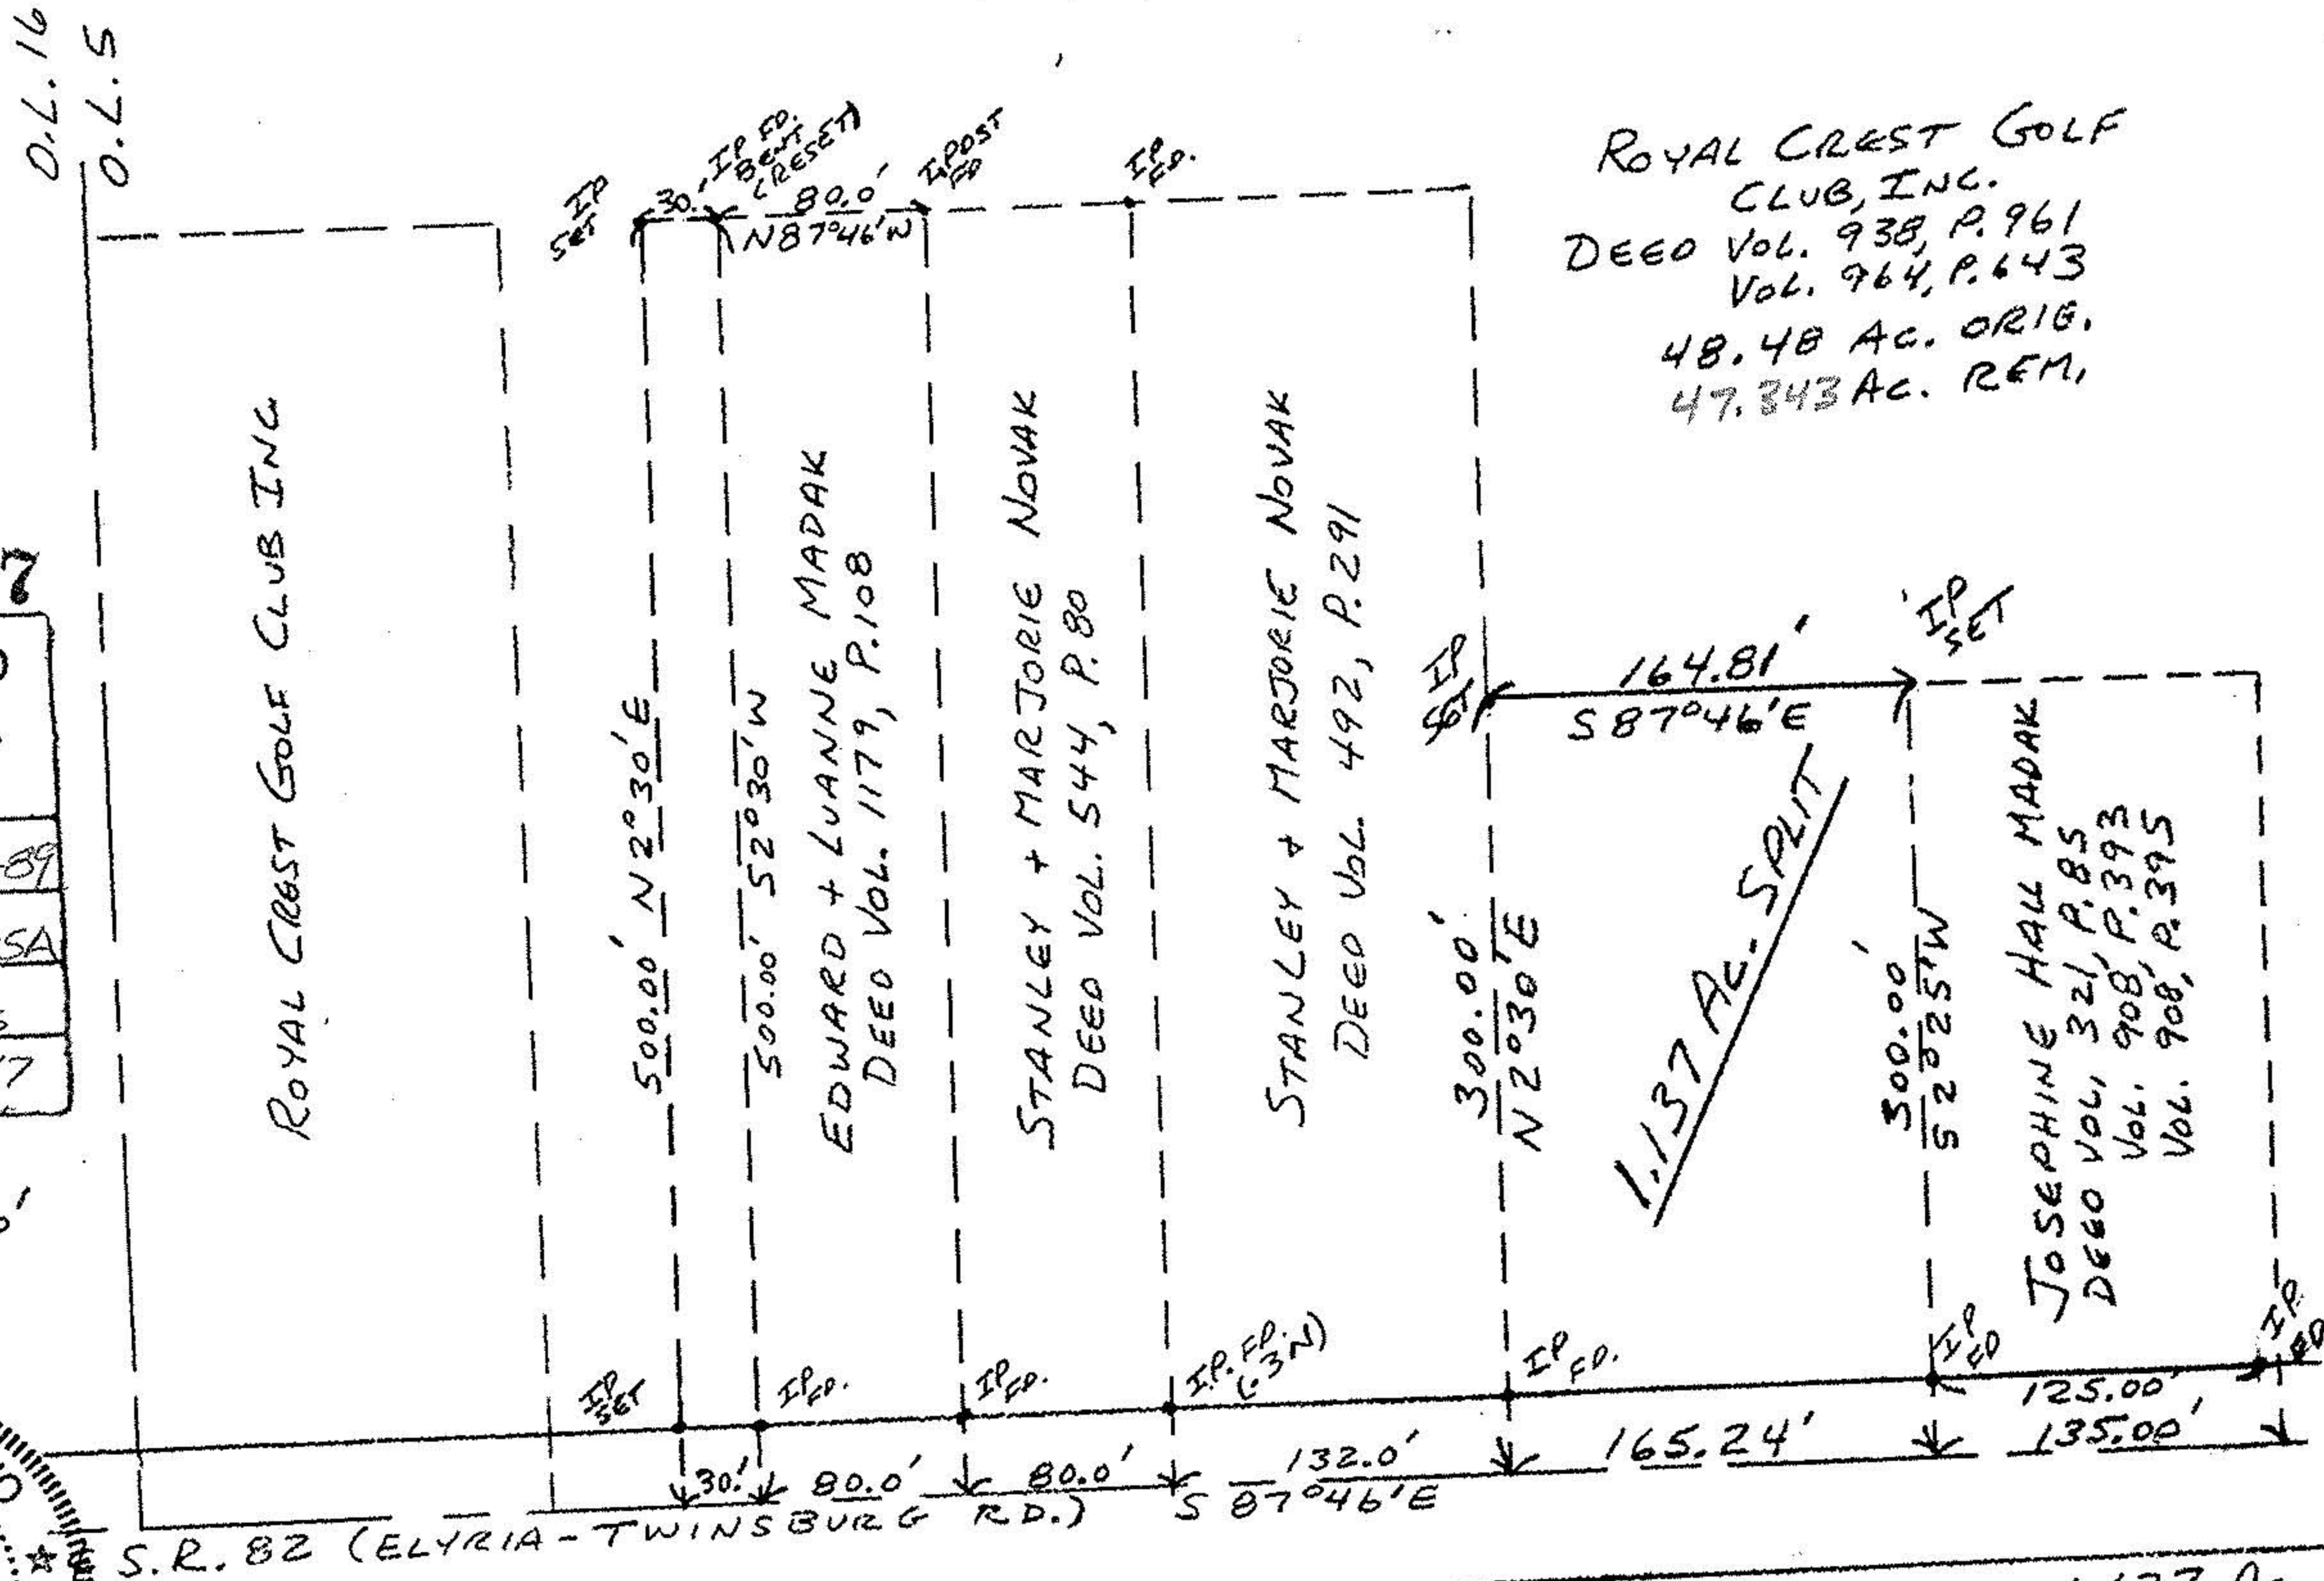 O.L. 16
O.L. 5
IP SET
30.'
IP FD.
BENT
(RESET)
80.0'
N87°46'W
IPPOST
FD
IP
FD.
ROYAL CREST GOLF
CLUB, INC.
DEED VOL. 938, P. 961
VOL. 964, P. 643
48.48 AC. ORIG.
47.343 AC. REM.
7
89
SA
7
ROYAL CREST GOLF CLUB INC
500.00' N2°30'E
500.00' S2°30'W
EDWARD + LUANNE MADAK
DEED VOL. 1179, P. 108
STANLEY + MARJORIE NOVAK
DEED VOL. 544, P. 80
STANLEY + MARJORIE NOVAK
DEED VOL. 492, P. 291
IP
SET
164.81'
S87°46'E
IP
SET
300.00'
N2°30'E
1.137 AC. SPLIT
300.00'
S2°25'W
JOSEPHINE HALL MADAK
DEED VOL. 321, P. 85
VOL. 908, P. 393
VOL. 908, P. 395
IP
SET
IP FD.
IP FD.
I.P. FD.
(.3N)
IP FD.
IP
FD
I.P.
FD
125.00'
30.' 80.0' 80.0' 132.0' 165.24' 135.00'
S 87°46'E
S.R. 82 (ELYRIA-TWINSBURG RD.)